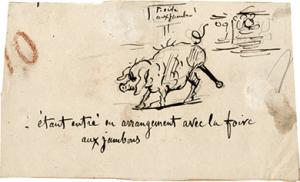 Foire
aux jambons
10
: étant entré en arrangement avec la foire
aux jambons